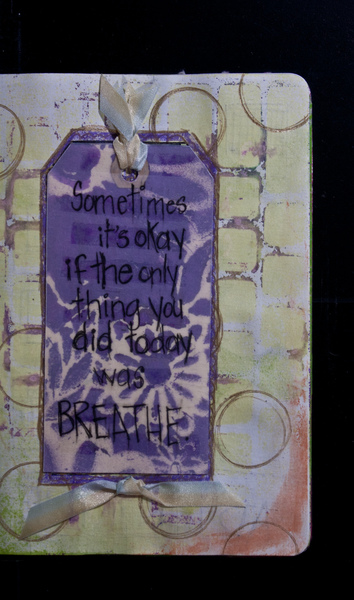 Sometimes
it's okay
if the only
thing you
did today
was
BREATHE.